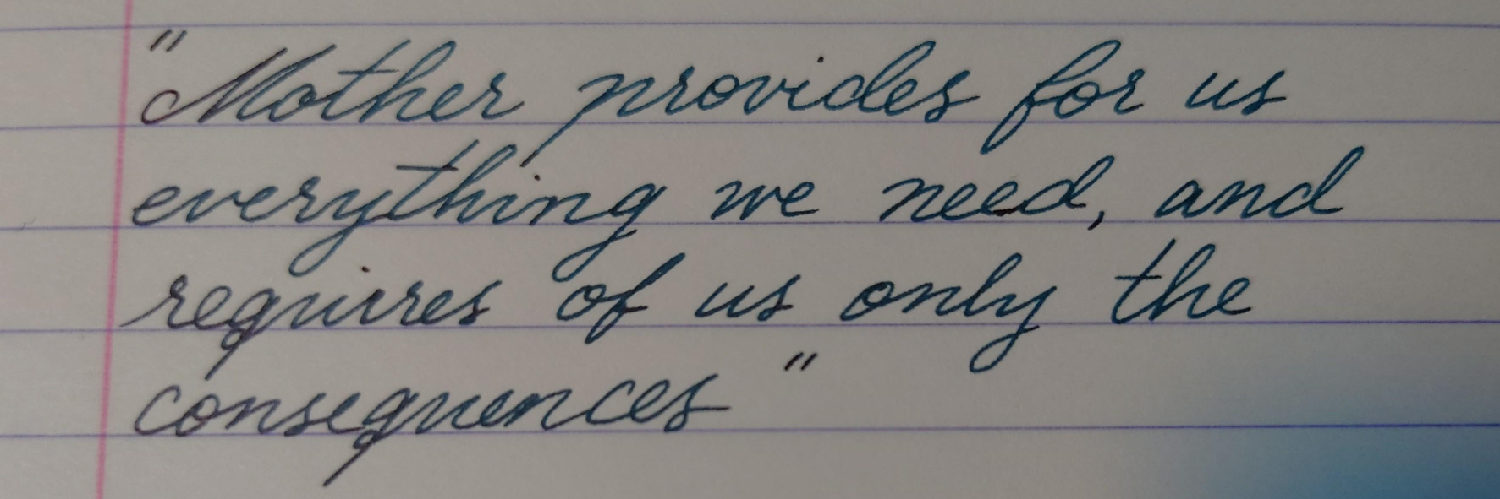 "Mother provides for us
everything we need, and
requires of us only the
consequences"